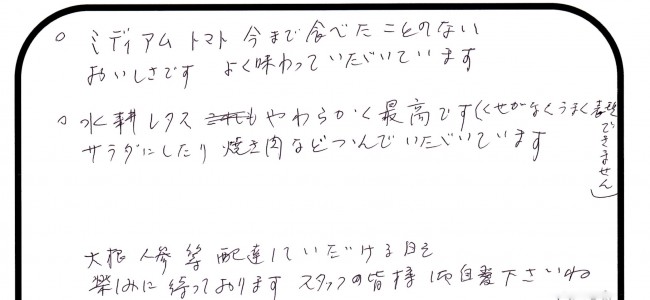 ○ ミディアム トマト 今まで食べたことのない
おいしさです よく味わっていただいています
○ 水耕レタス やわらかく最高です(くせがなくうまく表現できません)
サラダにしたり 焼き肉などつつんでいただいています
大根 人参 等 配達していただける日を
楽しみに待っております スタッフの皆様 御自愛下さいね